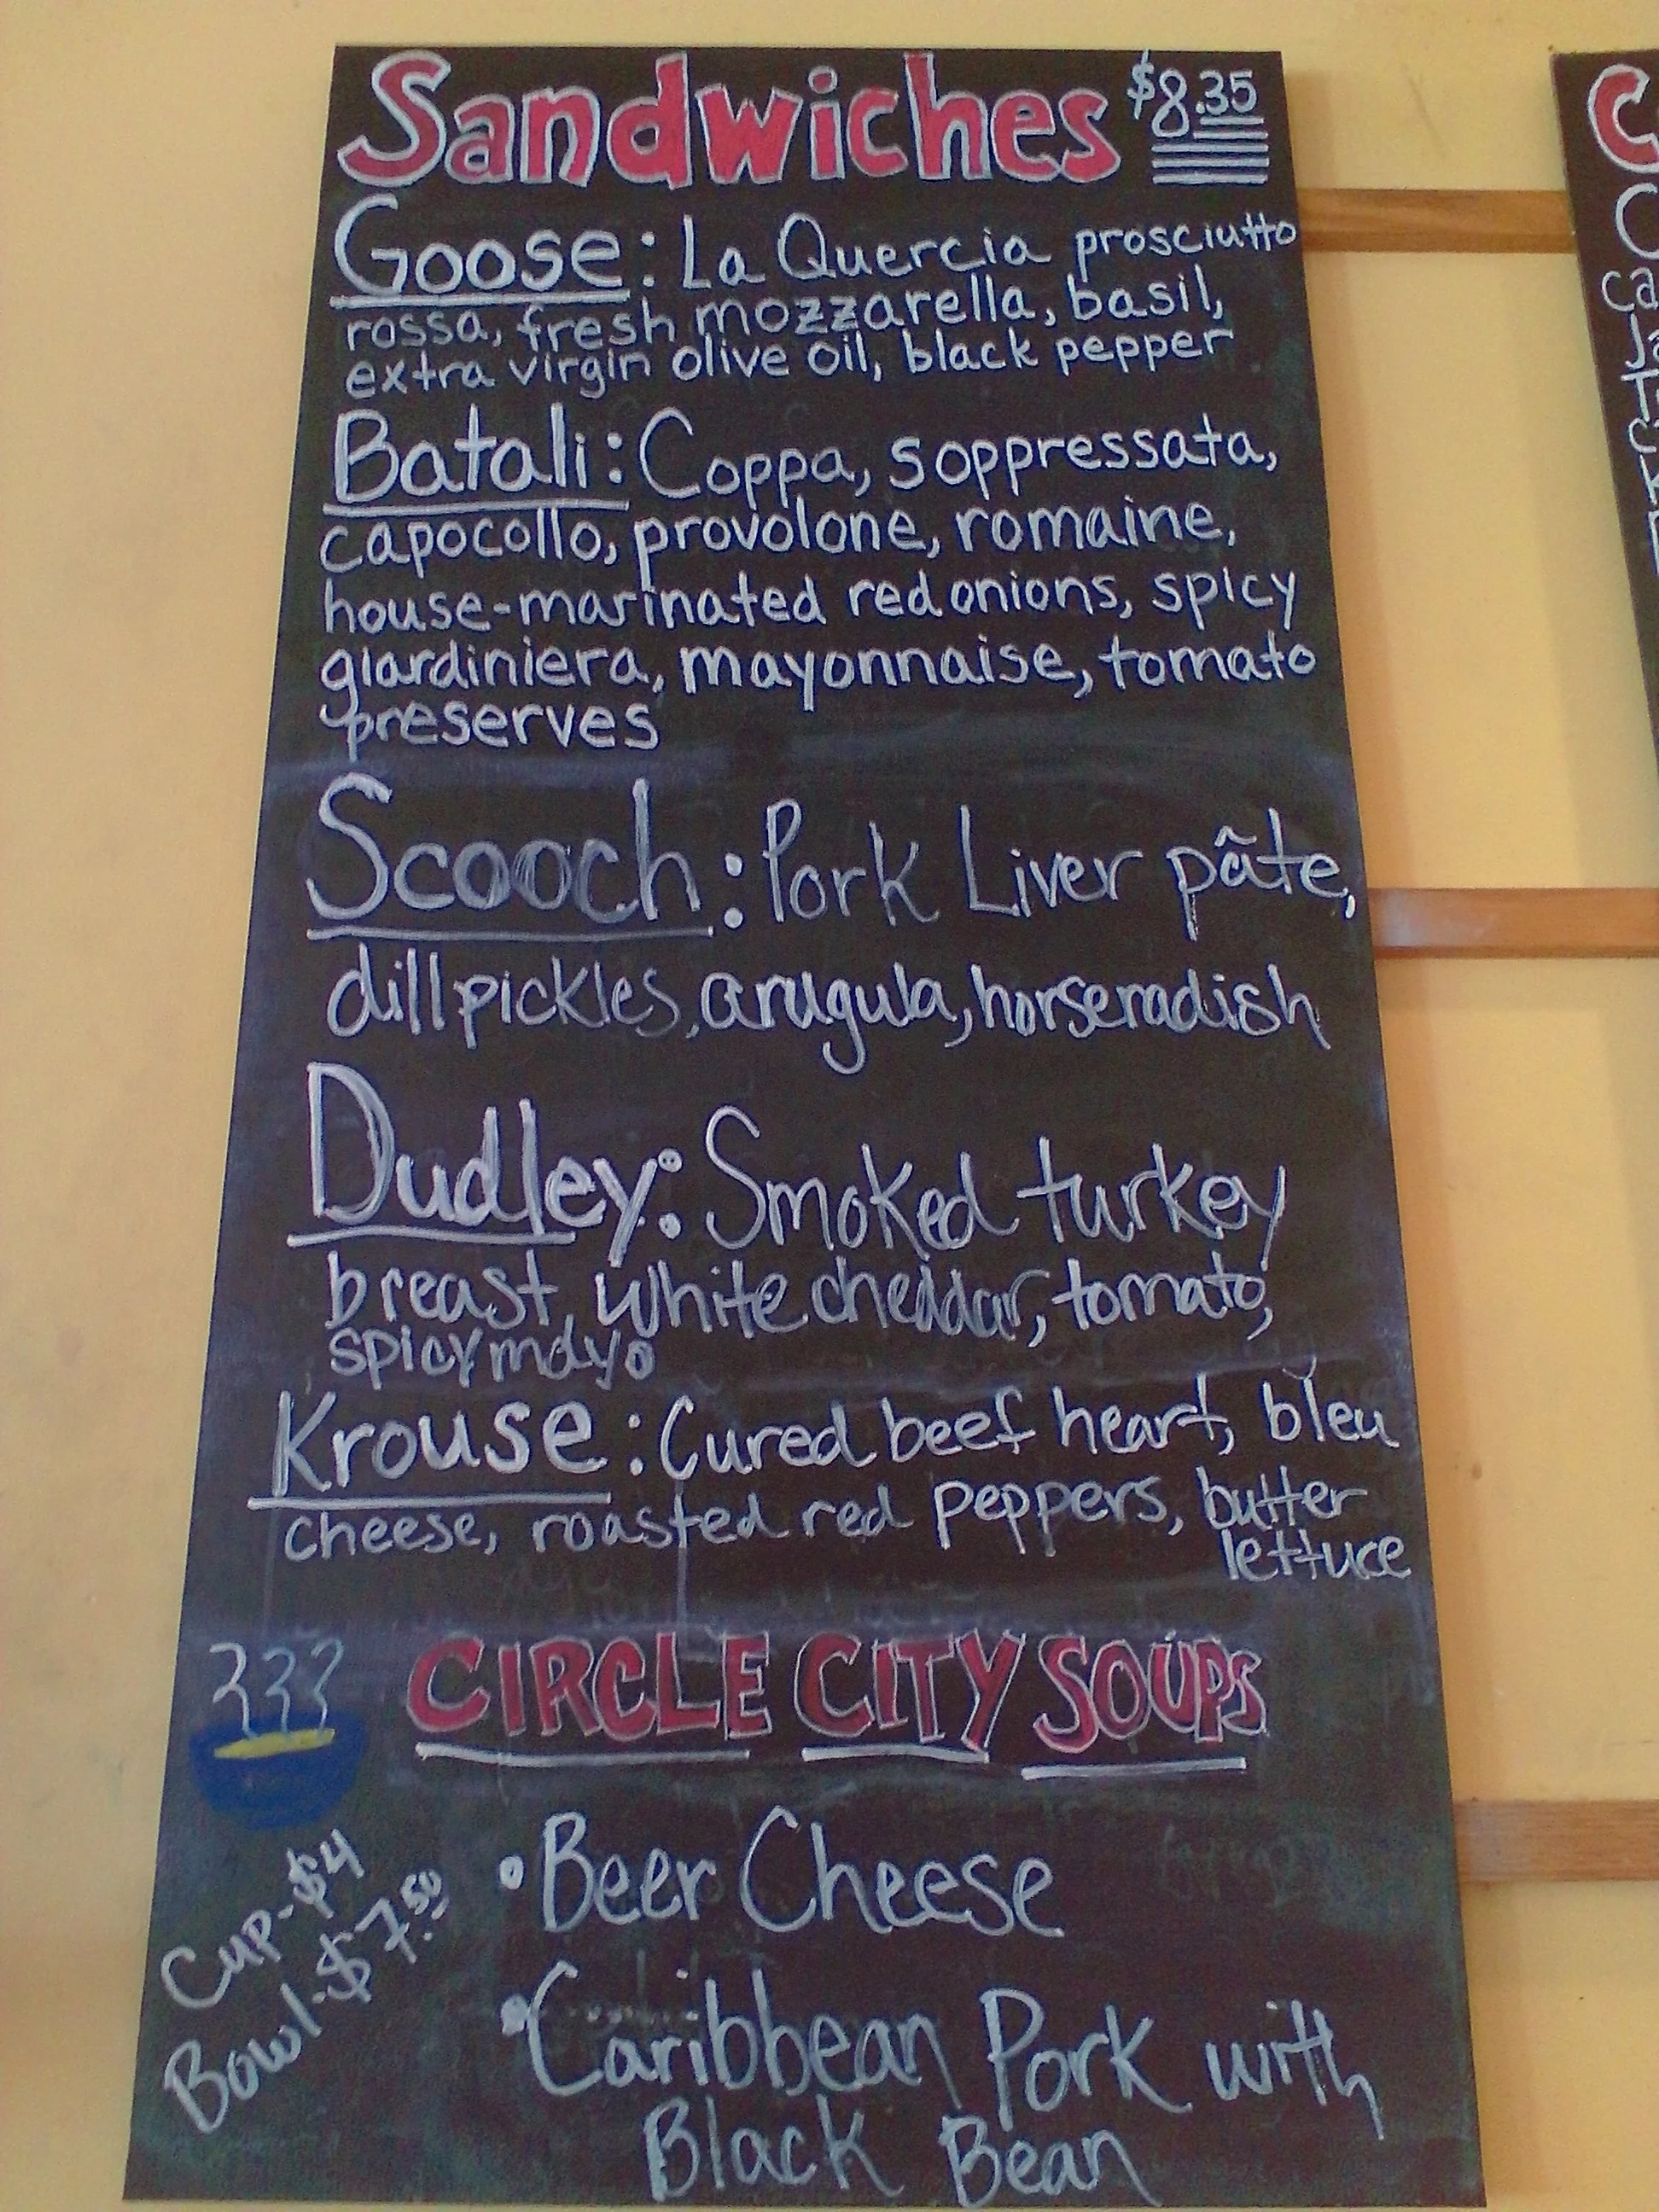 Sandwiches $8.35
Goose: La Quercia prosciutto
rossa, fresh mozzarella, basil,
extra virgin olive oil, black pepper
Batali: Coppa, soppressata,
capocollo, provolone, romaine,
house-marinated red onions, spicy
giardiniera, mayonnaise, tomato
preserves
Scooch: Pork Liver pâte,
dill pickles, arugula, horseradish
Dudley: Smoked turkey
breast, white cheddar, tomato,
spicy mayo
Krouse: Cured beef heart, bleu
cheese, roasted red peppers, butter
lettuce
CIRCLE CITY SOUPS
Cup-$4
Bowl-$7.50
• Beer Cheese
• Caribbean Pork with
Black Bean